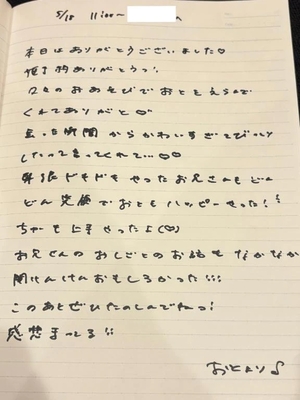 5/18 11:00〜
本日はありがとうございました♡
指名ありがとうっ!
久々のおあそびでおとをえらんで
くれてありがと♡
会った瞬間からかわいすぎてびっくり
したって言ってくれて…♡♡
緊張ドキドキやったお兄さんもどん
どん笑顔でおともハッピーやった!!
ちゅーも上手やったよ(♡)
お兄さんのおしごとのお話もなかなか
聞けんけんおもしろかった!!!
このあとぜひたのしんでねっ!
感想まってる!!
おとより♪